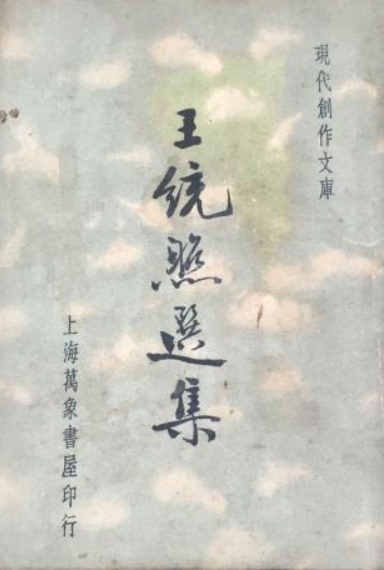 現代創作文庫
王統照選集
上海萬象書屋印行